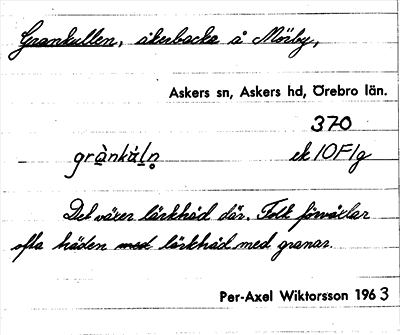 Grankullen, åkerbacke å Mörby,
Askers sn, Askers hd, Örebro län.
370
grànkul̥n ek 10F1g
Det växer lärkträd där. Folk förväxlar
ofta träden med lärkträd med granar.
Per-Axel Wiktorsson 1963